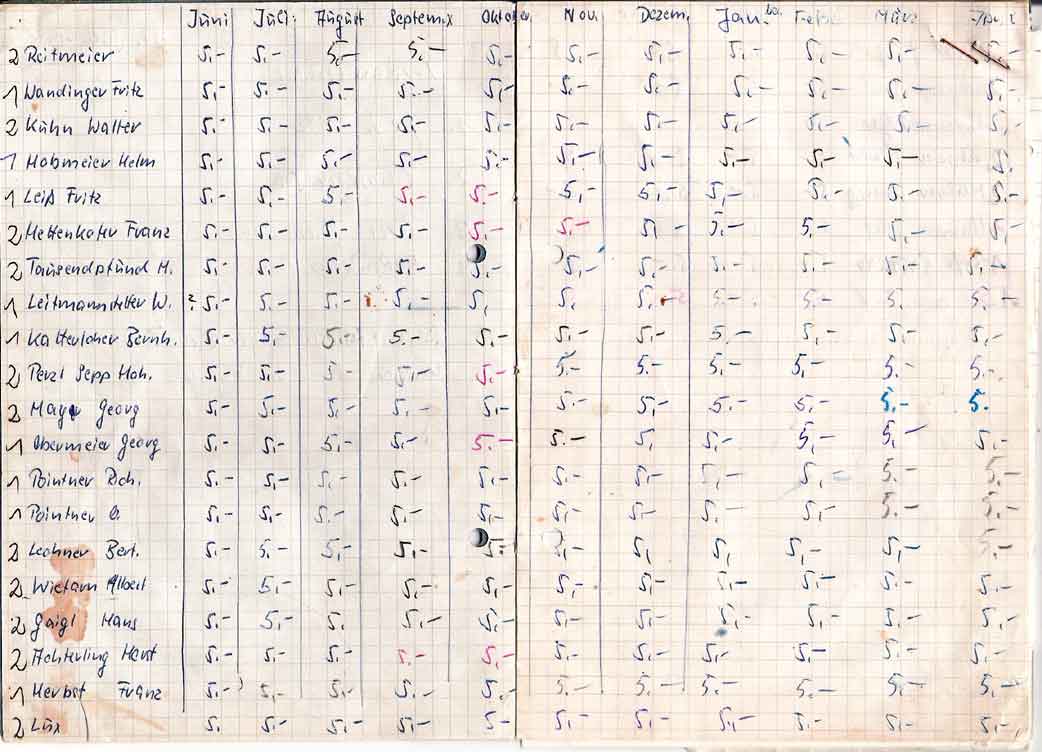 Juni Juli August Septemb. Oktober Nov. Dezem. Jan. Febr. März
2 Reitmeier 5,- 5,- 5,- 5,- 5,- 5,- 5,- 5,- 5,- 5,- 5,-
1 Wandinger Fritz 5,- 5,- 5,- 5,- 5,- 5,- 5,- 5,- 5,- 5,- 5,-
2 Kühn Walter 5,- 5,- 5,- 5,- 5,- 5,- 5,- 5,- 5,- 5,- 5,-
1 Hobmeier Helm 5,- 5,- 5,- 5,- 5,- 5,- 5,- 5,- 5,- 5,- 5.
1 Leiß Fritz 5,- 5,- 5,- 5,- 5,- 5,- 5,- 5,- 5,- 5,- 5,-
2 Hettenkofer Franz 5,- 5,- 5,- 5,- 5,- 5,- 5,- 5,- 5,- 5,- 5,-
2 Tausendpfund H. 5,- 5,- 5,- 5,- 5,- 5,- 5,- 5,- 5,- 5,- 5,-
1 W. ? 5,- 5,- 5,- 5,- 5, 5, 5,- 5,- 5,- 5, 5,-
1 Bernh. 5,- 5,- 5,- 5,- 5,- 5,- 5,- 5,- 5, 5,- 5,-
2 Perzl Sepp 5,- 5,- 5,- 5,- 5,- 5,- 5,- 5,- 5,- 5,- 5,-
2 Mayr Georg 5,- 5,- 5,- 5,- 5,- 5,- 5,- 5,- 5,- 5,- 5.
1 Obermeier Georg 5,- 5,- 5,- 5,- 5,- 5,- 5, 5,- 5,- 5,- 5,-
1 Pointner Rich. 5,- 5,- 5,- 5,- 5,- 5,- 5,- 5,- 5,- 5,- 5,-
1 Pointner 5,- 5,- 5,- 5,- 5,- 5,- 5,- 5,- 5,- 5,- 5,-
2 Lechner Bert. 5,- 5,- 5,- 5,- 5,- 5,- 5, 5, 5,- 5,- 5,-
2 Albert 5,- 5,- 5,- 5,- 5,- 5,- 5,- 5,- 5,- 5,- 5,-
2 Gaigl Hans 5,- 5,- 5, 5,- 5,- 5,- 5,- 5,- 5,- 5,- 5,-
2 Achterling Horst 5,- 5,- 5,- 5,- 5,- 5,- 5,- 5,- 5,- 5,- 5,-
1 Herbst Franz 5,- 5,- 5,- 5,- 5,- 5,- 5,- 5,- 5,- 5,- 5,-
2 Lux 5, 5,- 5,- 5,- 5- 5,- 5,- 5,- 5,- 5,- 5,-